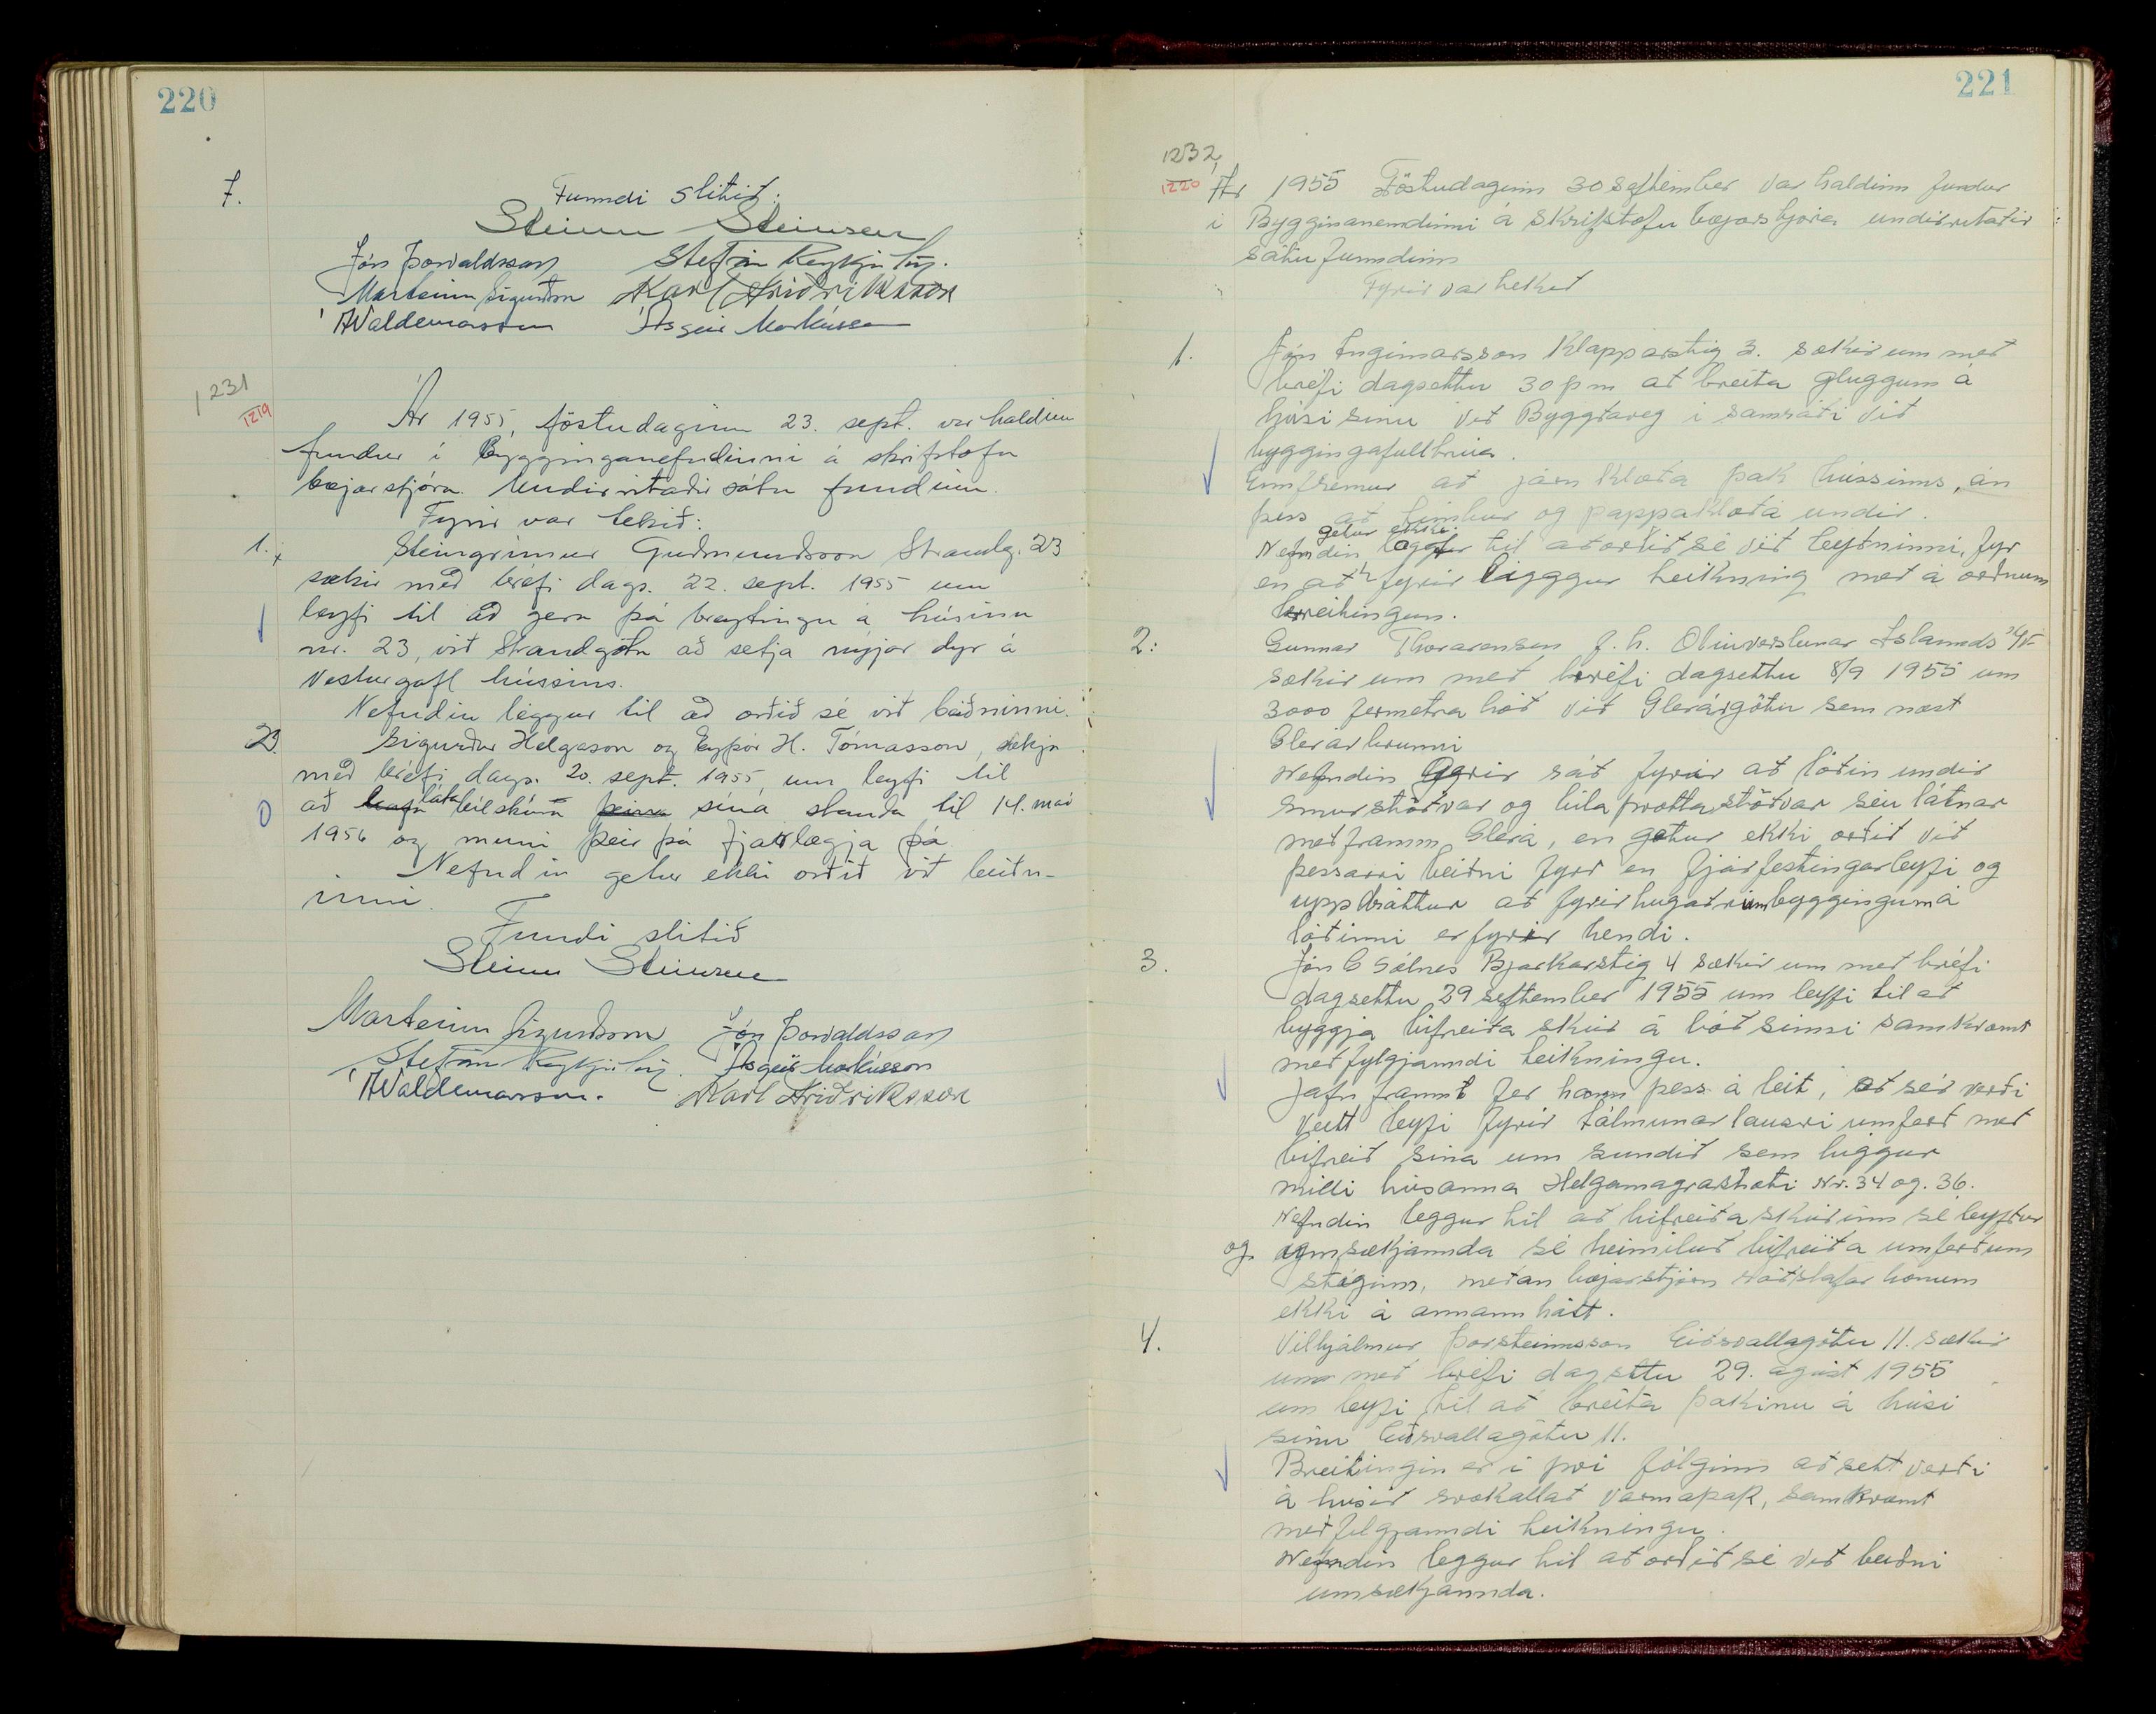 220
7.
Funndi slitið.
Steinn Steinsen
Jón Þorvaldsson Stefán Reykjalín.
Marteinn Sigurðsson Karl Friðriksson
Á Valdemarsson Ásgeir Markússon
1231
1219
Ár 1955, föstudaginn 23. sept. var haldinn
fundur í bygginganefndinni á skrifstofu
bæjarstjóra. Undirritaðir sátu fundinn.
Fyrir var tekið:
1. Steingrímur Guðmundsson Strandg. 23
sækir með bréfi dags. 22. sept. 1955 um
leyfi til að gera þá breytingu á húsinu
nr. 23, við Strandgötu að setja nýjar dyr á
Vesturgafl hússins.
Nefndin leggur til að orðið sé við beiðninni.
2. Sigurður Helgason og Eyþór H. Tómasson, sækja
með bréfi dags. 20. sept. 1955, um leyfi til
að láta bílskúra þeirra sína standa til 14. maí
1956 og muni þeir þá fjarlægja þá.
Nefndin getur ekki orðið við beiðn-
inni.
Fundi slitið
Steinn Steinsen
Marteinn Sigurðsson Jón Þorvaldsson
Stefán Reykjalín. Ásgeir Markússon
Á Valdemarsson. Karl Friðriksson
221
1232
1220
Ár 1955 Föstudaginn 30 september var haldinn fundur
í Bygginanemdinni á skrifstofu bæjarstjóra undirritatir
sátu funndinn
Fyrir var tekit
1. Jón Ingimarsson Klapparstig 3. sækir um met
bréfi dagsettu 30 þ m at breita gluggum á
húsi sínu vit Byggtaveg í samráti vit
byggingafulltrúa.
Ennfremur at járn klæta þak hússinns, án
þess at timbur og pappaklæta undir.
getur ekki
Nefndin laggt til at ortit sé vit beytninni, fyr
en at fyrir ligggur teikning met á ortnum
breitingum.
2: Gunnar Thorarensen f. h. Oliuverslunar Islannds h/f
sækir um met bréfi dagsettu 8/9 1955 um
3000 fermetra lót vit Glerárgötu sem næst
Glerárbrunni
Nefndin gerir rát fyrir at lótin undir
smurstötvar og bila þvottastötvar séu látnar
metframm Glerá, en getur ekki ortit vit
þessarri beitni fyrr en fjárfestingarleyfi og
uppdráttur at fyrirhugatrium byggingum á
lótinni er fyrir hendi.
3. Jón G Sólnes Bjarkarstig 4 sækir um met bréfi
dagsettu 29 september 1955 um leyfi til at
byggja bifreita skúr á lót sinni samkvæmt
metfylgjanndi teikningu.
Jafn frammt fer hann þess á leit, at sér verti
veitt leyfi fyrir tálmunarlausri umfert met
bifreit sína um sundit sem liggur
milli húsanna Helgamagrastræti Nr. 34 og. 36.
Nefndin leggur til at bifreitaskúrinn sé leyftur
og. umsækjannda sé heimilut bifreita umfert um
stíginn, metan bæjarstjórn rátstafar honum
ekki á annann hátt.
4. Vilhjálmur Þorsteinnsson Eiðsvallagötu 11. sækir
um met bréfi dagsettu 29. agúst 1955
um leyfi til at breita þakinu á húsi
sínu Eiðsvallagötu 11.
Breitingin er í þvi fólginn at sett verti
á húsit svokallat varmaþak, samkvæmt
metfylgjanndi teikningu.
Nefndin leggur til at ortit sé vit beitni
umsækjannda.